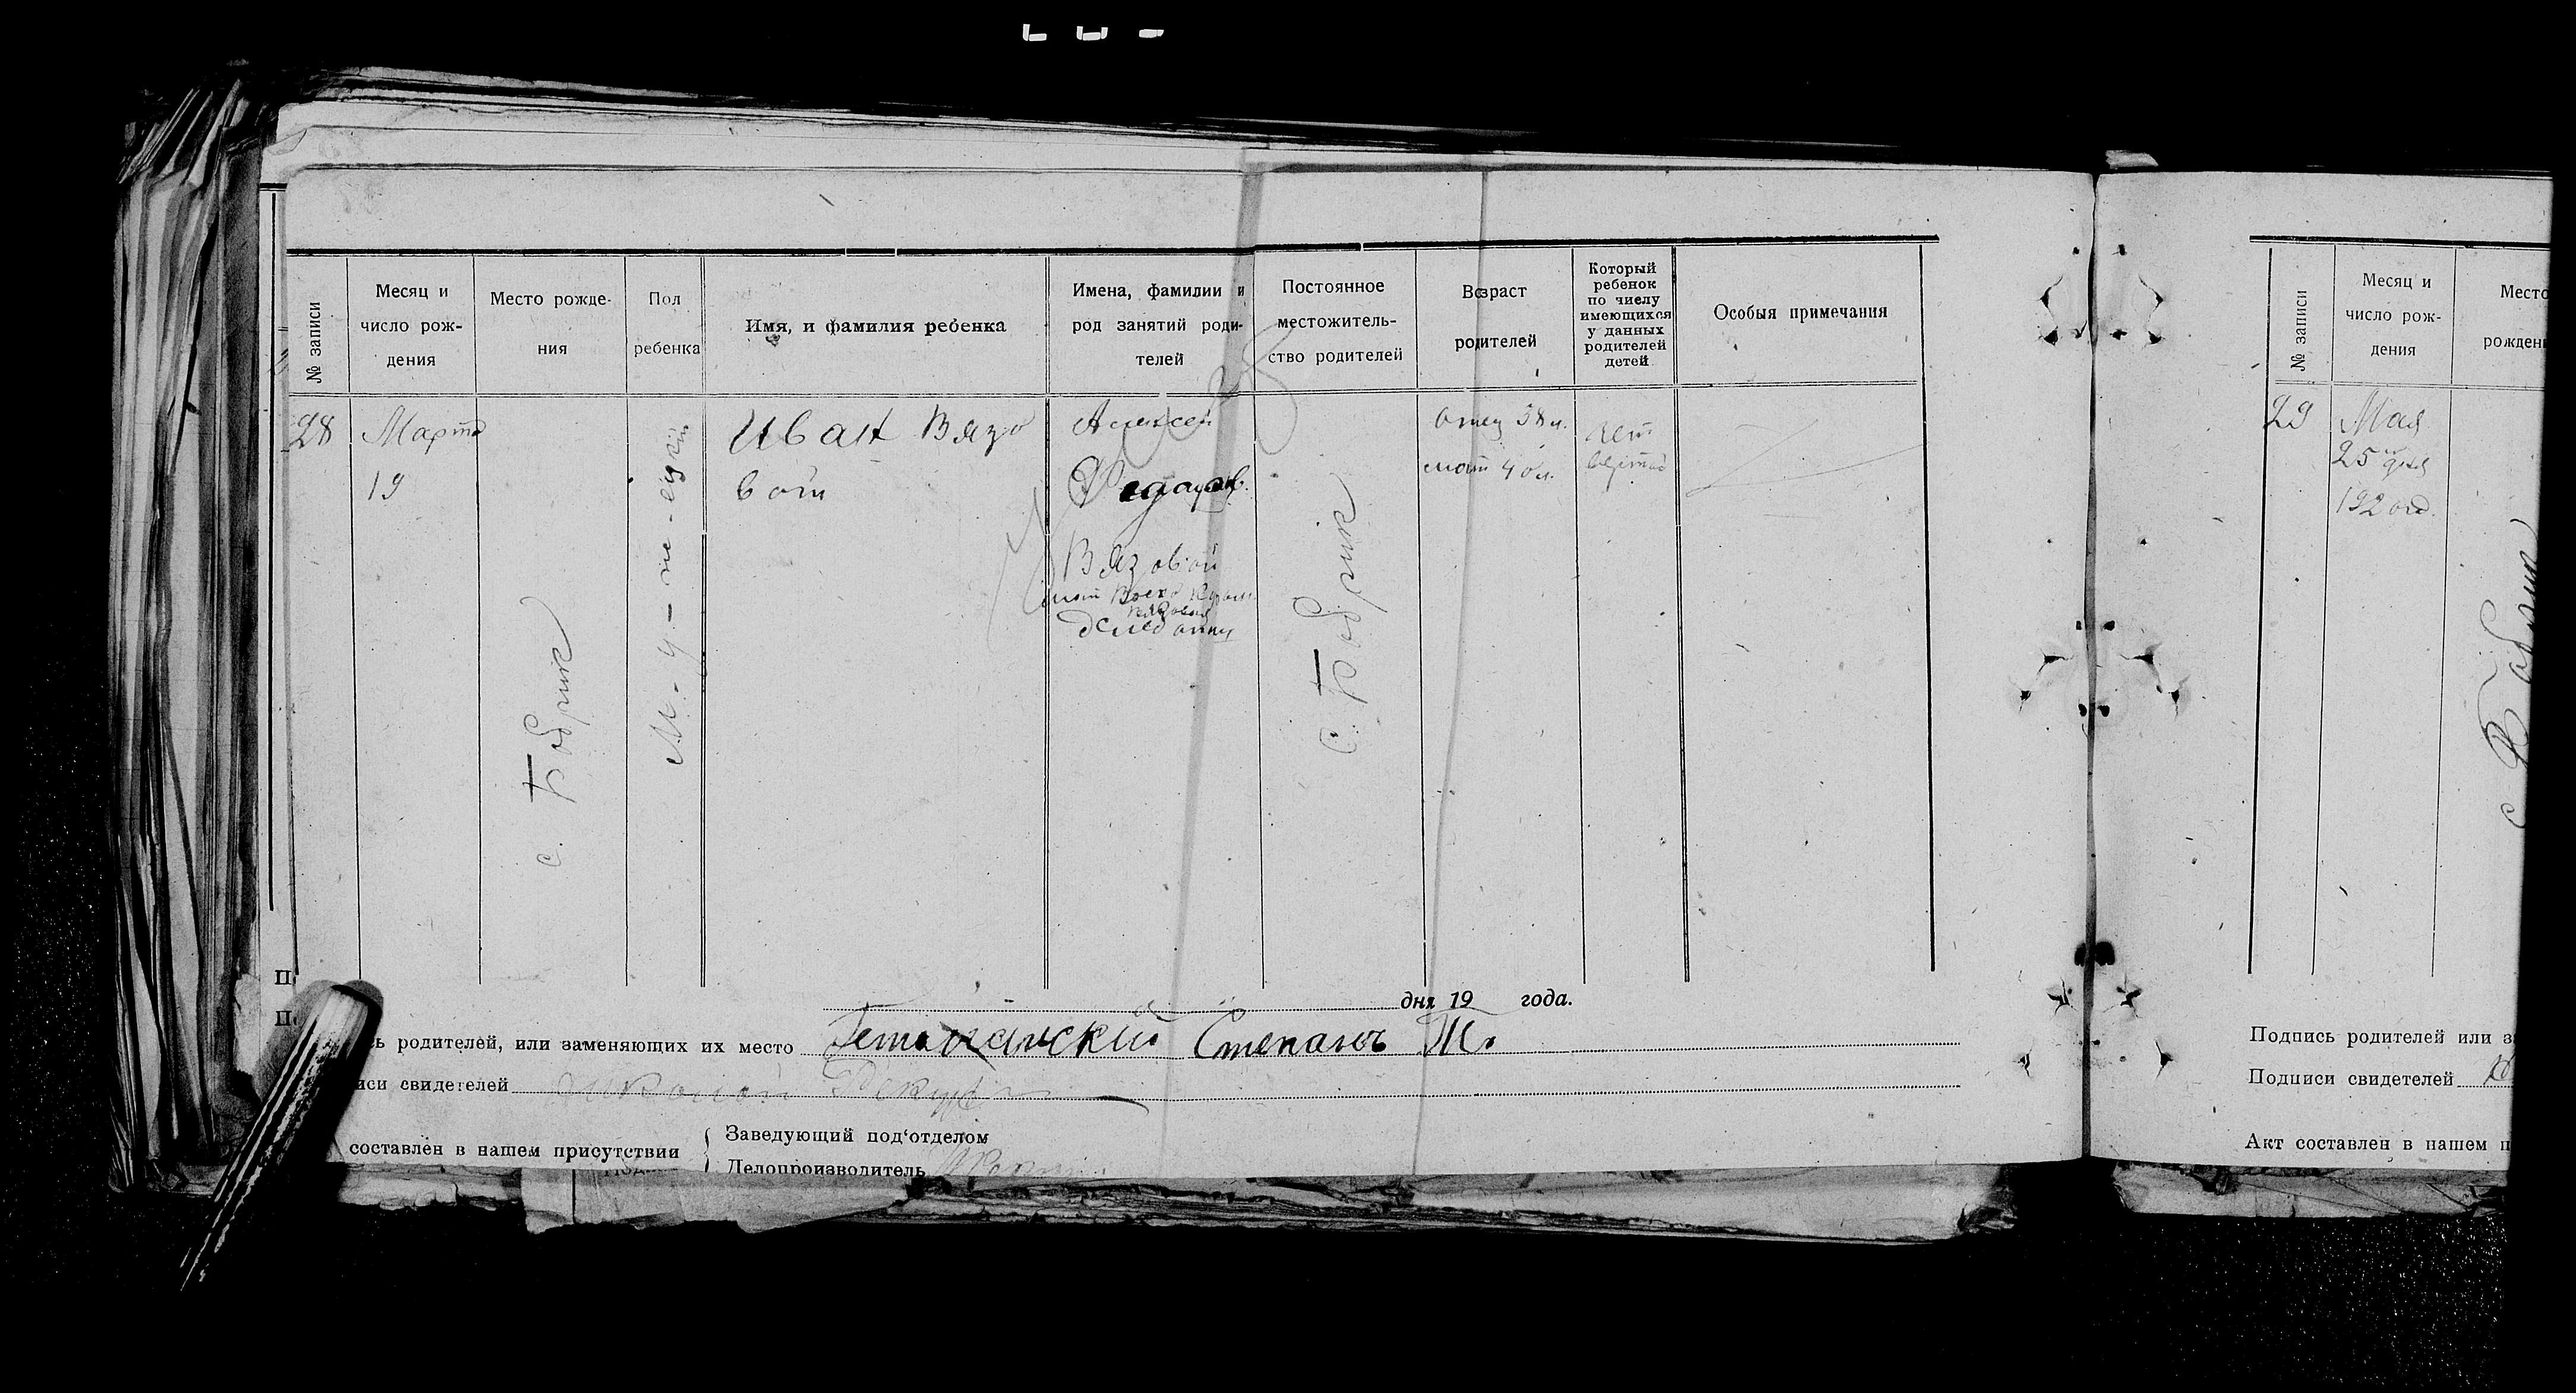 № записи
Месяц и
число рож-
дения
Место рожде-
ния
Пол
ребенка
Имя, и фамилия ребенка
Имена, фамилии и
род занятий роди-
телей
Постоянное
местожитель-
ство родителей
Возраст
родителей
Который
ребенок
по числу
имеющихся
у данных
родителей
детей
Особыя примечания
28
Марта
19
с. Бобрик
М-у-ж-ский
Иван Вязо
вой
Алексей
Федоров.
Вязовой
с. Бобрик
отец 38 л.
мать 40 л.
дня 19 года.
родителей, или заменяющих их место
Степанъ Т.
свидетелей
составлен в нашем присутствии
Заведующий под'отделом
Делопроизводитель
№ записи
Месяц и
число рож-
дения
Место
рожден
29
Мая
25 дня
192 год.
с. Бобрик
Подпись родителей или з
Подписи свидетелей
Акт составлен в нашем п